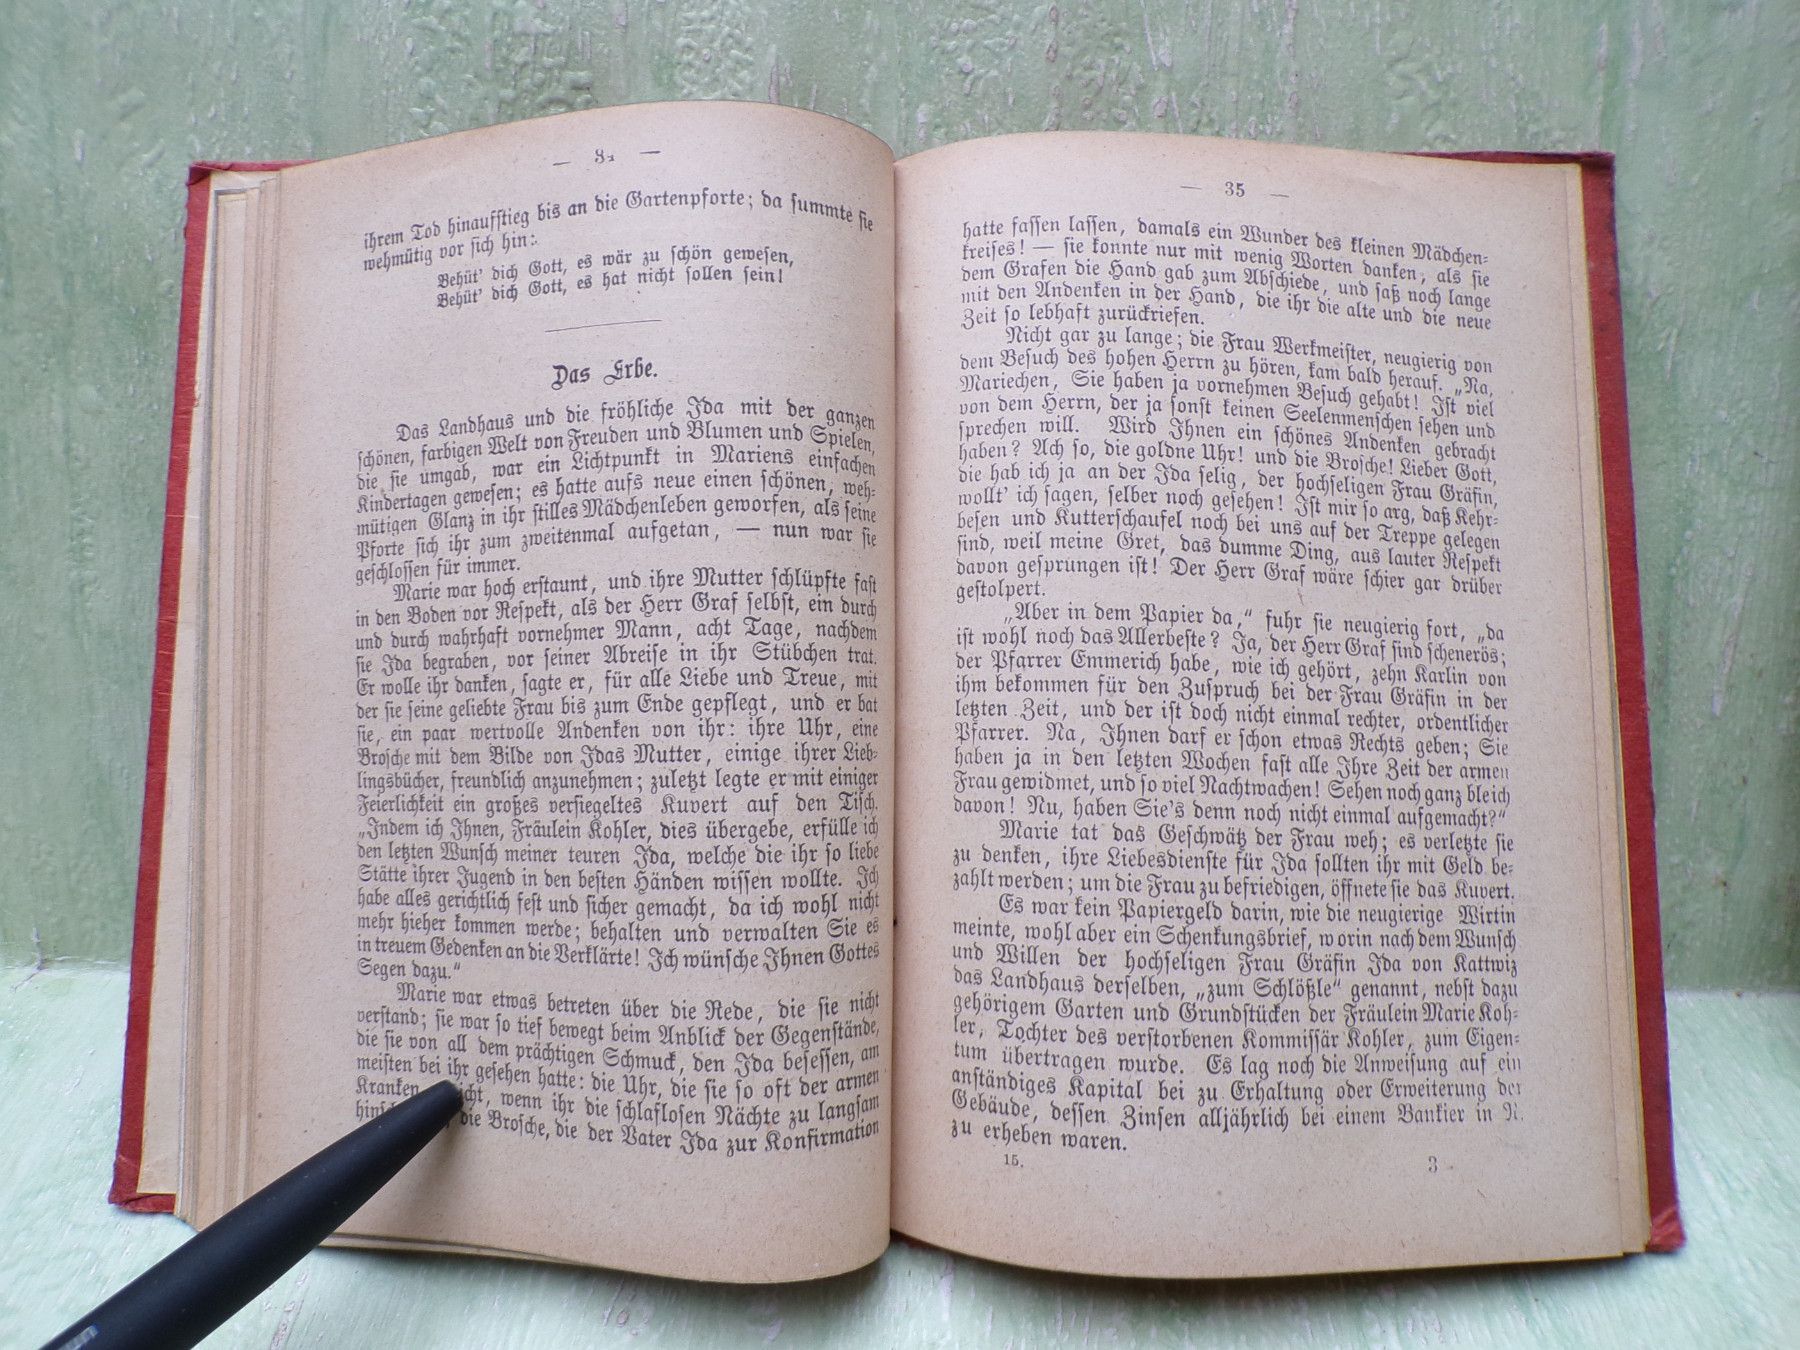 — 34 —
ihrem Tod hinaufstieg bis an die Gartenpforte; da summte sie
wehmütig vor sich hin:
Behüt' dich Gott, es wär zu schön gewesen,
Behüt' dich Gott, es hat nicht sollen sein!
Das Erbe.
Das Landhaus und die fröhliche Ida mit der ganzen
schönen, farbigen Welt von Freuden und Blumen und Spielen,
die sie umgab, war ein Lichtpunkt in Mariens einfachen
Kindertagen gewesen; es hatte aufs neue einen schönen, weh-
mütigen Glanz in ihr stilles Mädchenleben geworfen, als seine
Pforte sich ihr zum zweitenmal aufgetan, — nun war sie
geschlossen für immer.
Marie war hoch erstaunt, und ihre Mutter schlüpfte fast
in den Boden vor Respekt, als der Herr Graf selbst, ein durch
und durch wahrhaft vornehmer Mann, acht Tage, nachdem
sie Ida begraben, vor seiner Abreise in ihr Stübchen trat.
Er wolle ihr danken, sagte er, für alle Liebe und Treue, mit
der sie seine geliebte Frau bis zum Ende gepflegt, und er bat
sie, ein paar wertvolle Andenken von ihr: ihre Uhr, eine
Brosche mit dem Bilde von Idas Mutter, einige ihrer Lieb-
lingsbücher, freundlich anzunehmen; zuletzt legte er mit einiger
Feierlichkeit ein großes versiegeltes Kuvert auf den Tisch.
„Indem ich Ihnen, Fräulein Kohler, dies übergebe, erfülle ich
den letzten Wunsch meiner teuren Ida, welche die ihr so liebe
Stätte ihrer Jugend in den besten Händen wissen wollte. Ich
habe alles gerichtlich fest und sicher gemacht, da ich wohl nicht
mehr hieher kommen werde; behalten und verwalten Sie es
in treuem Gedenken an die Verklärte! Ich wünsche Ihnen Gottes
Segen dazu.“
Marie war etwas betreten über die Rede, die sie nicht
verstand; sie war so tief bewegt beim Anblick der Gegenstände,
die sie von all dem prächtigen Schmuck, den Ida besessen, am
meisten bei ihr gesehen hatte: die Uhr, die sie so oft der armen
Kranken wenn ihr die schlaflosen Nächte zu langsam
die Brosche, die der Vater Ida zur Konfirmation
— 35 —
hatte fassen lassen, damals ein Wunder des kleinen Mädchen-
kreises! — sie konnte nur mit wenig Worten danken, als sie
dem Grafen die Hand gab zum Abschiede, und saß noch lange
mit den Andenken in der Hand, die ihr die alte und die neue
Zeit so lebhaft zurückriefen.
Nicht gar zu lange; die Frau Werkmeister, neugierig von
dem Besuch des hohen Herrn zu hören, kam bald herauf. „Na,
Mariechen, Sie haben ja vornehmen Besuch gehabt! Ist viel
von dem Herrn, der ja sonst keinen Seelenmenschen sehen und
sprechen will. Wird Ihnen ein schönes Andenken gebracht
haben? Ach so, die goldne Uhr! und die Brosche! Lieber Gott,
die hab ich ja an der Ida selig, der hochseligen Frau Gräfin,
wollt' ich sagen, selber noch gesehen! Ist mir so arg, daß Kehr-
besen und Kutterschaufel noch bei uns auf der Treppe gelegen
sind, weil meine Gret, das dumme Ding, aus lauter Respekt
davon gesprungen ist! Der Herr Graf wäre schier gar drüber
gestolpert.
„Aber in dem Papier da,“ fuhr sie neugierig fort, „da
ist wohl noch das Allerbeste? Ja, der Herr Graf sind schenerös;
der Pfarrer Emmerich habe, wie ich gehört, zehn Karlin von
ihm bekommen für den Zuspruch bei der Frau Gräfin in der
letzten Zeit, und der ist doch nicht einmal rechter, ordentlicher
Pfarrer. Na, Ihnen darf er schon etwas Rechts geben; Sie
haben ja in den letzten Wochen fast alle Ihre Zeit der armen
Frau gewidmet, und so viel Nachtwachen! Sehen noch ganz bleich
davon! Nu, haben Sie's denn noch nicht einmal aufgemacht?“
Marie tat das Geschwätz der Frau weh; es verletzte sie
zu denken, ihre Liebesdienste für Ida sollten ihr mit Geld be-
zahlt werden; um die Frau zu befriedigen, öffnete sie das Kuvert.
Es war kein Papiergeld darin, wie die neugierige Wirtin
meinte, wohl aber ein Schenkungsbrief, worin nach dem Wunsch
und Willen der hochseligen Frau Gräfin Ida von Kattwiz
das Landhaus derselben, „zum Schlößle“ genannt, nebst dazu
gehörigem Garten und Grundstücken der Fräulein Marie Koh-
ler, Tochter des verstorbenen Kommissär Kohler, zum Eigen-
tum übertragen wurde. Es lag noch die Anweisung auf ein
anständiges Kapital bei zu Erhaltung oder Erweiterung der
Gebäude, dessen Zinsen alljährlich bei einem Bankier in N.
zu erheben waren.
15. 3